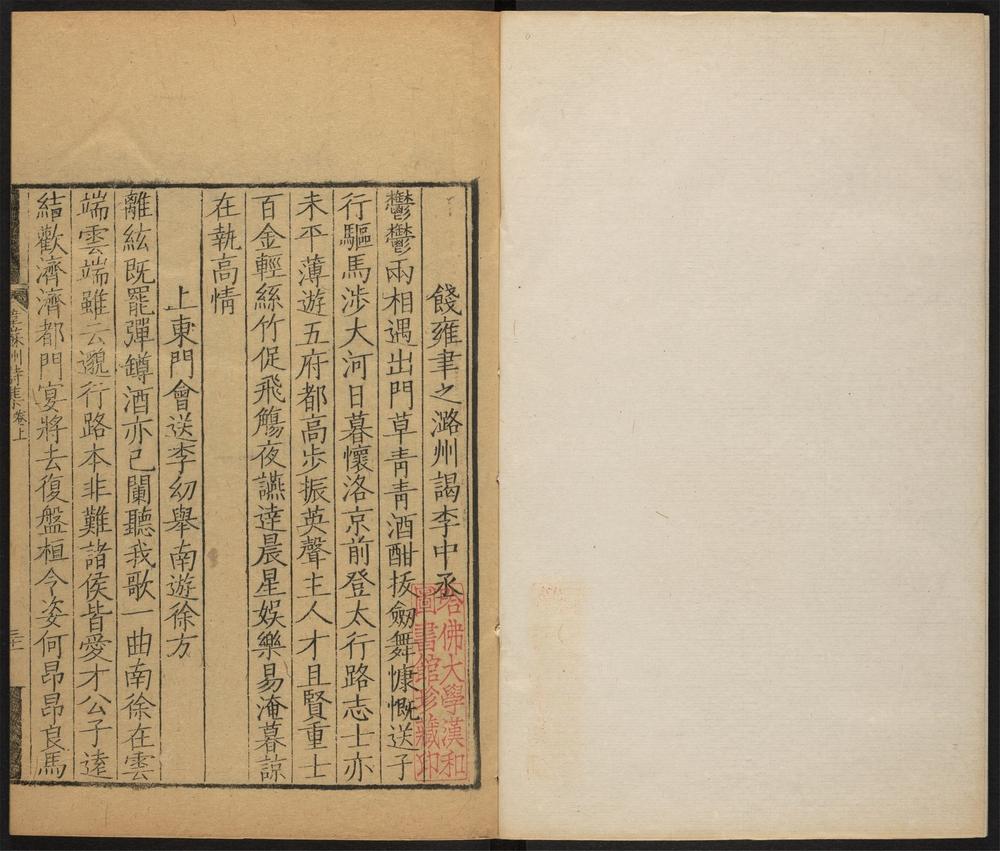 餞雍聿之潞州謁李中丞
鬱鬱兩相遇出門草青青酒酣拔劒舞慷慨送子
行驅馬涉大河日暮懷洛京前登太行路志士亦
未平薄遊五府都高步振英聲主人才且賢重士
百金輕絲竹促飛觴夜讌達晨星娛樂易淹暮諒
在執高情
上東門會送李幼舉南遊徐方
離絃既罷彈罇酒亦已闌聽我歌一曲南徐在雲
端雲端雖云邈行路本非難諸侯皆愛才公子遠
結歡濟濟都門宴將去復盤桓今姿何昂昂良馬
韋蘇州詩集卷上
哈佛大學漢和
圖書館珍藏印